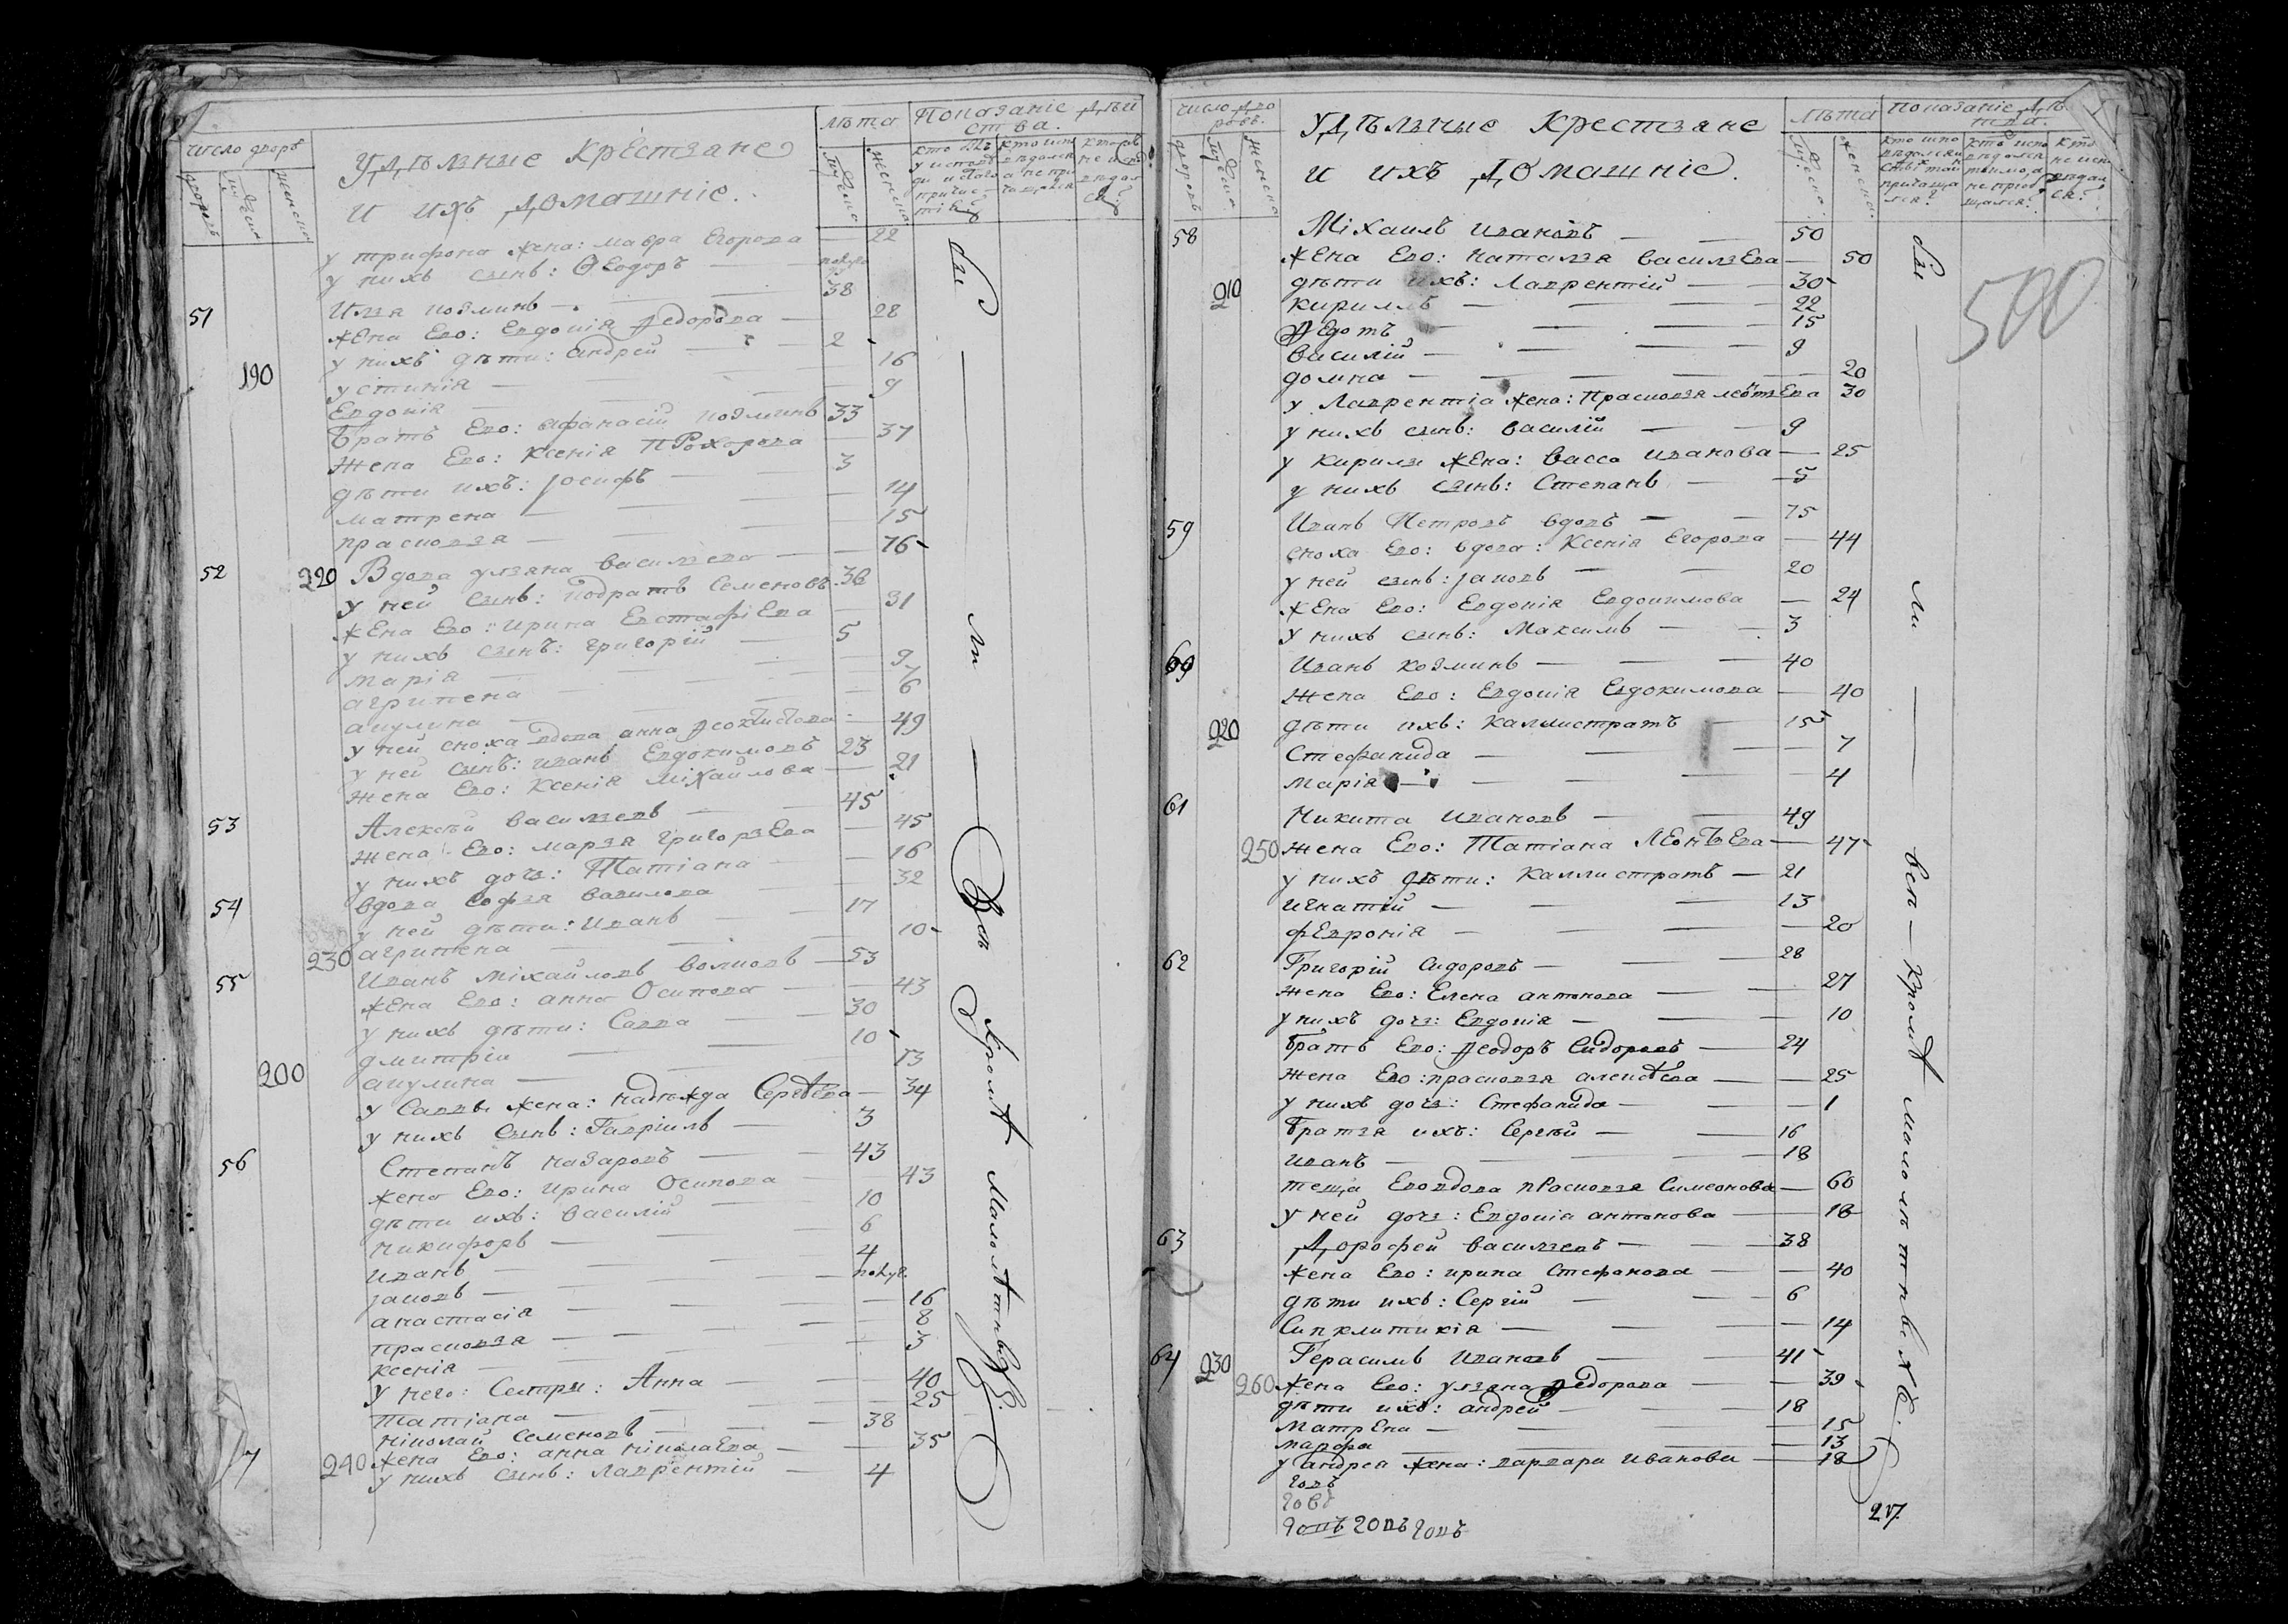 число дворъ
дворовъ
муж: пола
женска
Удѣльные Крестьяне
и ихъ Домашніе.
лѣта
мужеска
женска
Показаніе Дѣй
ства.
у трифона жена: мавра Егорова — 22
у нихъ сынъ: Ѳеодоръ — полуго
51 Илья козминъ — 38
жена Его: Евдокія Федорова — 28
у нихъ дѣти: андрей — 2
190 устинія — 16
Евдокія — 9
братъ Его: афанасій козминъ 33
жена Его: Ксенія Прохорова — 37
дѣти ихъ: Іосифъ — 3
матрена — 14
прасковья — 15
52 220 Вдова ульяна васильева — 76
у ней сынъ: Кодратъ Семеновъ 36
жена Его: Ирина ЕвстафіЕва — 31
у нихъ сынъ: григорій — 5
марія — 9
агрипена — 7
акулина — 6
у ней сноха вдова анна Феоктистова — 49
у ней сынъ: иванъ Евдокимовъ 23
жена Его: Ксенія Міхайлова — 21
53 Алексѣй васильевъ — 45
жена Его: марья григорьЕва — 45
у нихъ дочь: Татіана — 16
54 вдова софья вавилова — 32
у ней дѣти: иванъ — 17
230 агрипена — 10
55 Иванъ Міхайловъ волковъ — 53
жена Его: анна Осипова — 43
у нихъ дѣти: Савва — 30
дмитріи — 10
200 акулина — 13
у Саввы жена: надѣжда СергѣЕва — 34
у нихъ сынъ: Гавріилъ — 3
56 Степанъ назаровъ — 43
жена Его: Ирина Осипова — 43
дѣти ихъ: василій — 10
никифоръ — 6
иванъ — 4
Іаковъ — полуг.
анастасія — 16
прасковья — 8
Ксенія — 3
у него: Сестры: Анна — 40
Татіана — 25
7 Николай Семеновъ — 38
240 жена Его: анна николаЕва — 35
у нихъ сынъ: лаврентій — 4
бы — ли — Всѣ кромѣ Малолѣтныхъ.
число дво
ровъ.
дворовъ
мужска
женска
Удѣльные Крестьяне
и ихъ Домашніе.
лѣта
мужеска
женска.
Показаніе Дѣ
тва.
500
58 Міхаилъ ивановъ — 50
жена Его: наталья васильЕва — 50
210 дѣти ихъ: Лаврентій — 30
кириллъ — 22
Федотъ — 15
василій — 9
домна — 20
у Лаврентія жена: Прасковья леонтьЕва 30
у нихъ сынъ: василій — 9
у кирилы жена: васса иванова — 25
у нихъ сынъ: Степанъ — 5
59 Иванъ Петровъ вдовъ — 75
сноха Его: вдова: Ксенія Егорова — 44
у ней сынъ: Іаковъ — 20
жена Его: Евдокія Евдокимова — 24
у нихъ сынъ: Максимъ — 3
60 Иванъ козминъ — 40
жена Его: Евдокія Евдокимова — 40
220 дѣти ихъ: каллистратъ — 15
Стефанида — 7
марія — 4
61 Никита ивановъ — 49
250 жена Его: Татіана ЛЕонтьЕва — 47
у нихъ дѣти: каллистратъ — 21
игнатій — 13
фЕвронія — 20
62 Григорій Сидоровъ — 28
жена Его: Елена антонова — 27
у нихъ дочь: Евдокія — 10
братъ Его: Феодоръ Сидоровъ — 24
жена Его: прасковья алексѣева — 25
у нихъ дочь: Стефанида — 1
братья ихъ: Сергѣй — 16
иванъ — 18
теща Его вдова прасковья Симеонова — 60
у ней дочь: Евдокія антонова — 18
63 Дорофей васильевъ — 38
жена Его: ирина Стефанова — 40
дѣти ихъ: Сергій — 6
Синклитикія — 14
64 230 Герасимъ ивановъ — 41
260 жена Его: ульяна Федорова — 39
дѣти ихъ: андрей — 18
матрЕна — 15
марфа — 13
у андрея жена: варвара иванова — 18
бы — ли — всѣ — кромѣ малолѣтныхъ.
говъ
говъ
говъ говъ говъ
217